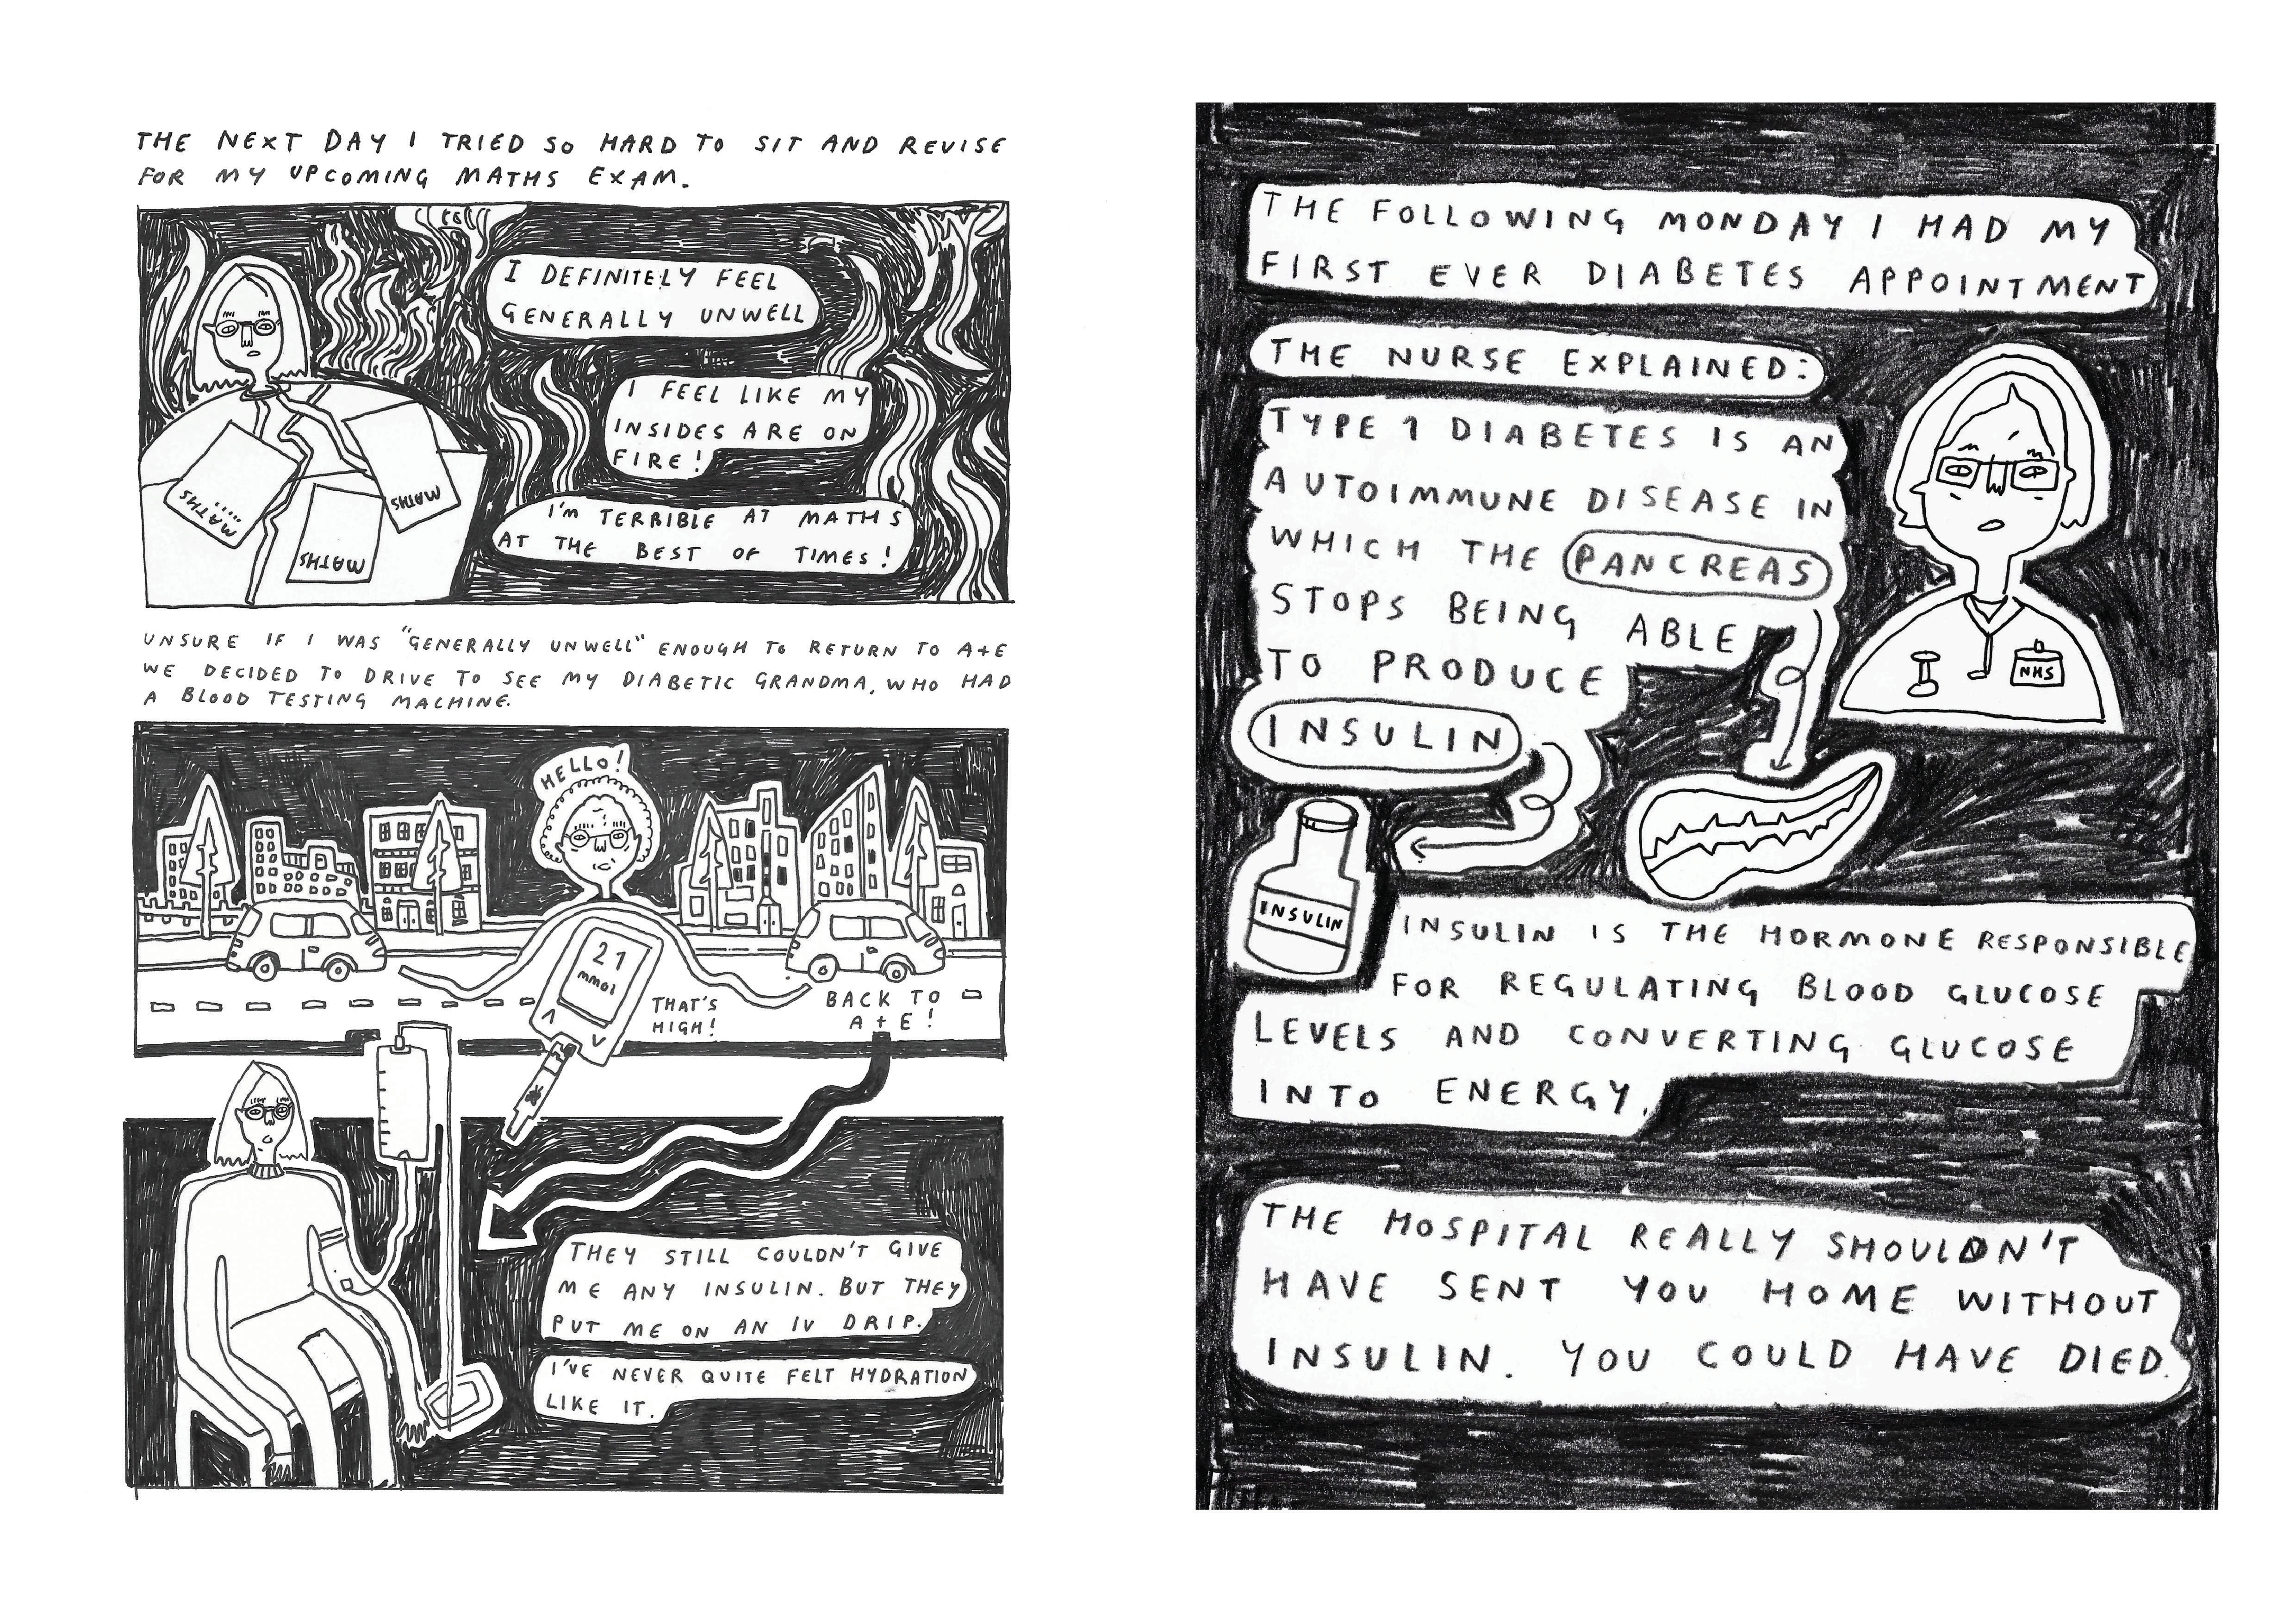 THE NEXT DAY I TRIED SO HARD TO SIT AND REVISE
FOR MY UPCOMING MATHS EXAM.
I DEFINITELY FEEL
GENERALLY UNWELL
I FEEL LIKE MY
INSIDES ARE ON
FIRE!
I'M TERRIBLE AT MATHS
AT THE BEST OF TIMES!
MATHS....
MATHS
MATHS
UNSURE IF I WAS "GENERALLY UNWELL" ENOUGH TO RETURN TO A+E
WE DECIDED TO DRIVE TO SEE MY DIABETIC GRANDMA, WHO HAD
A BLOOD TESTING MACHINE.
HELLO!
21
mmol
THAT'S
HIGH!
BACK TO
A+E!
THEY STILL COULDN'T GIVE
ME ANY INSULIN. BUT THEY
PUT ME ON AN IV DRIP.
I'VE NEVER QUITE FELT HYDRATION
LIKE IT.
THE FOLLOWING MONDAY I HAD MY
FIRST EVER DIABETES APPOINTMENT
THE NURSE EXPLAINED:
TYPE 1 DIABETES IS AN
AUTOIMMUNE DISEASE IN
WHICH THE PANCREAS
STOPS BEING ABLE
TO PRODUCE
INSULIN
NHS
INSULIN
INSULIN IS THE HORMONE RESPONSIBLE
FOR REGULATING BLOOD GLUCOSE
LEVELS AND CONVERTING GLUCOSE
INTO ENERGY.
THE HOSPITAL REALLY SHOULDN'T
HAVE SENT YOU HOME WITHOUT
INSULIN. YOU COULD HAVE DIED.